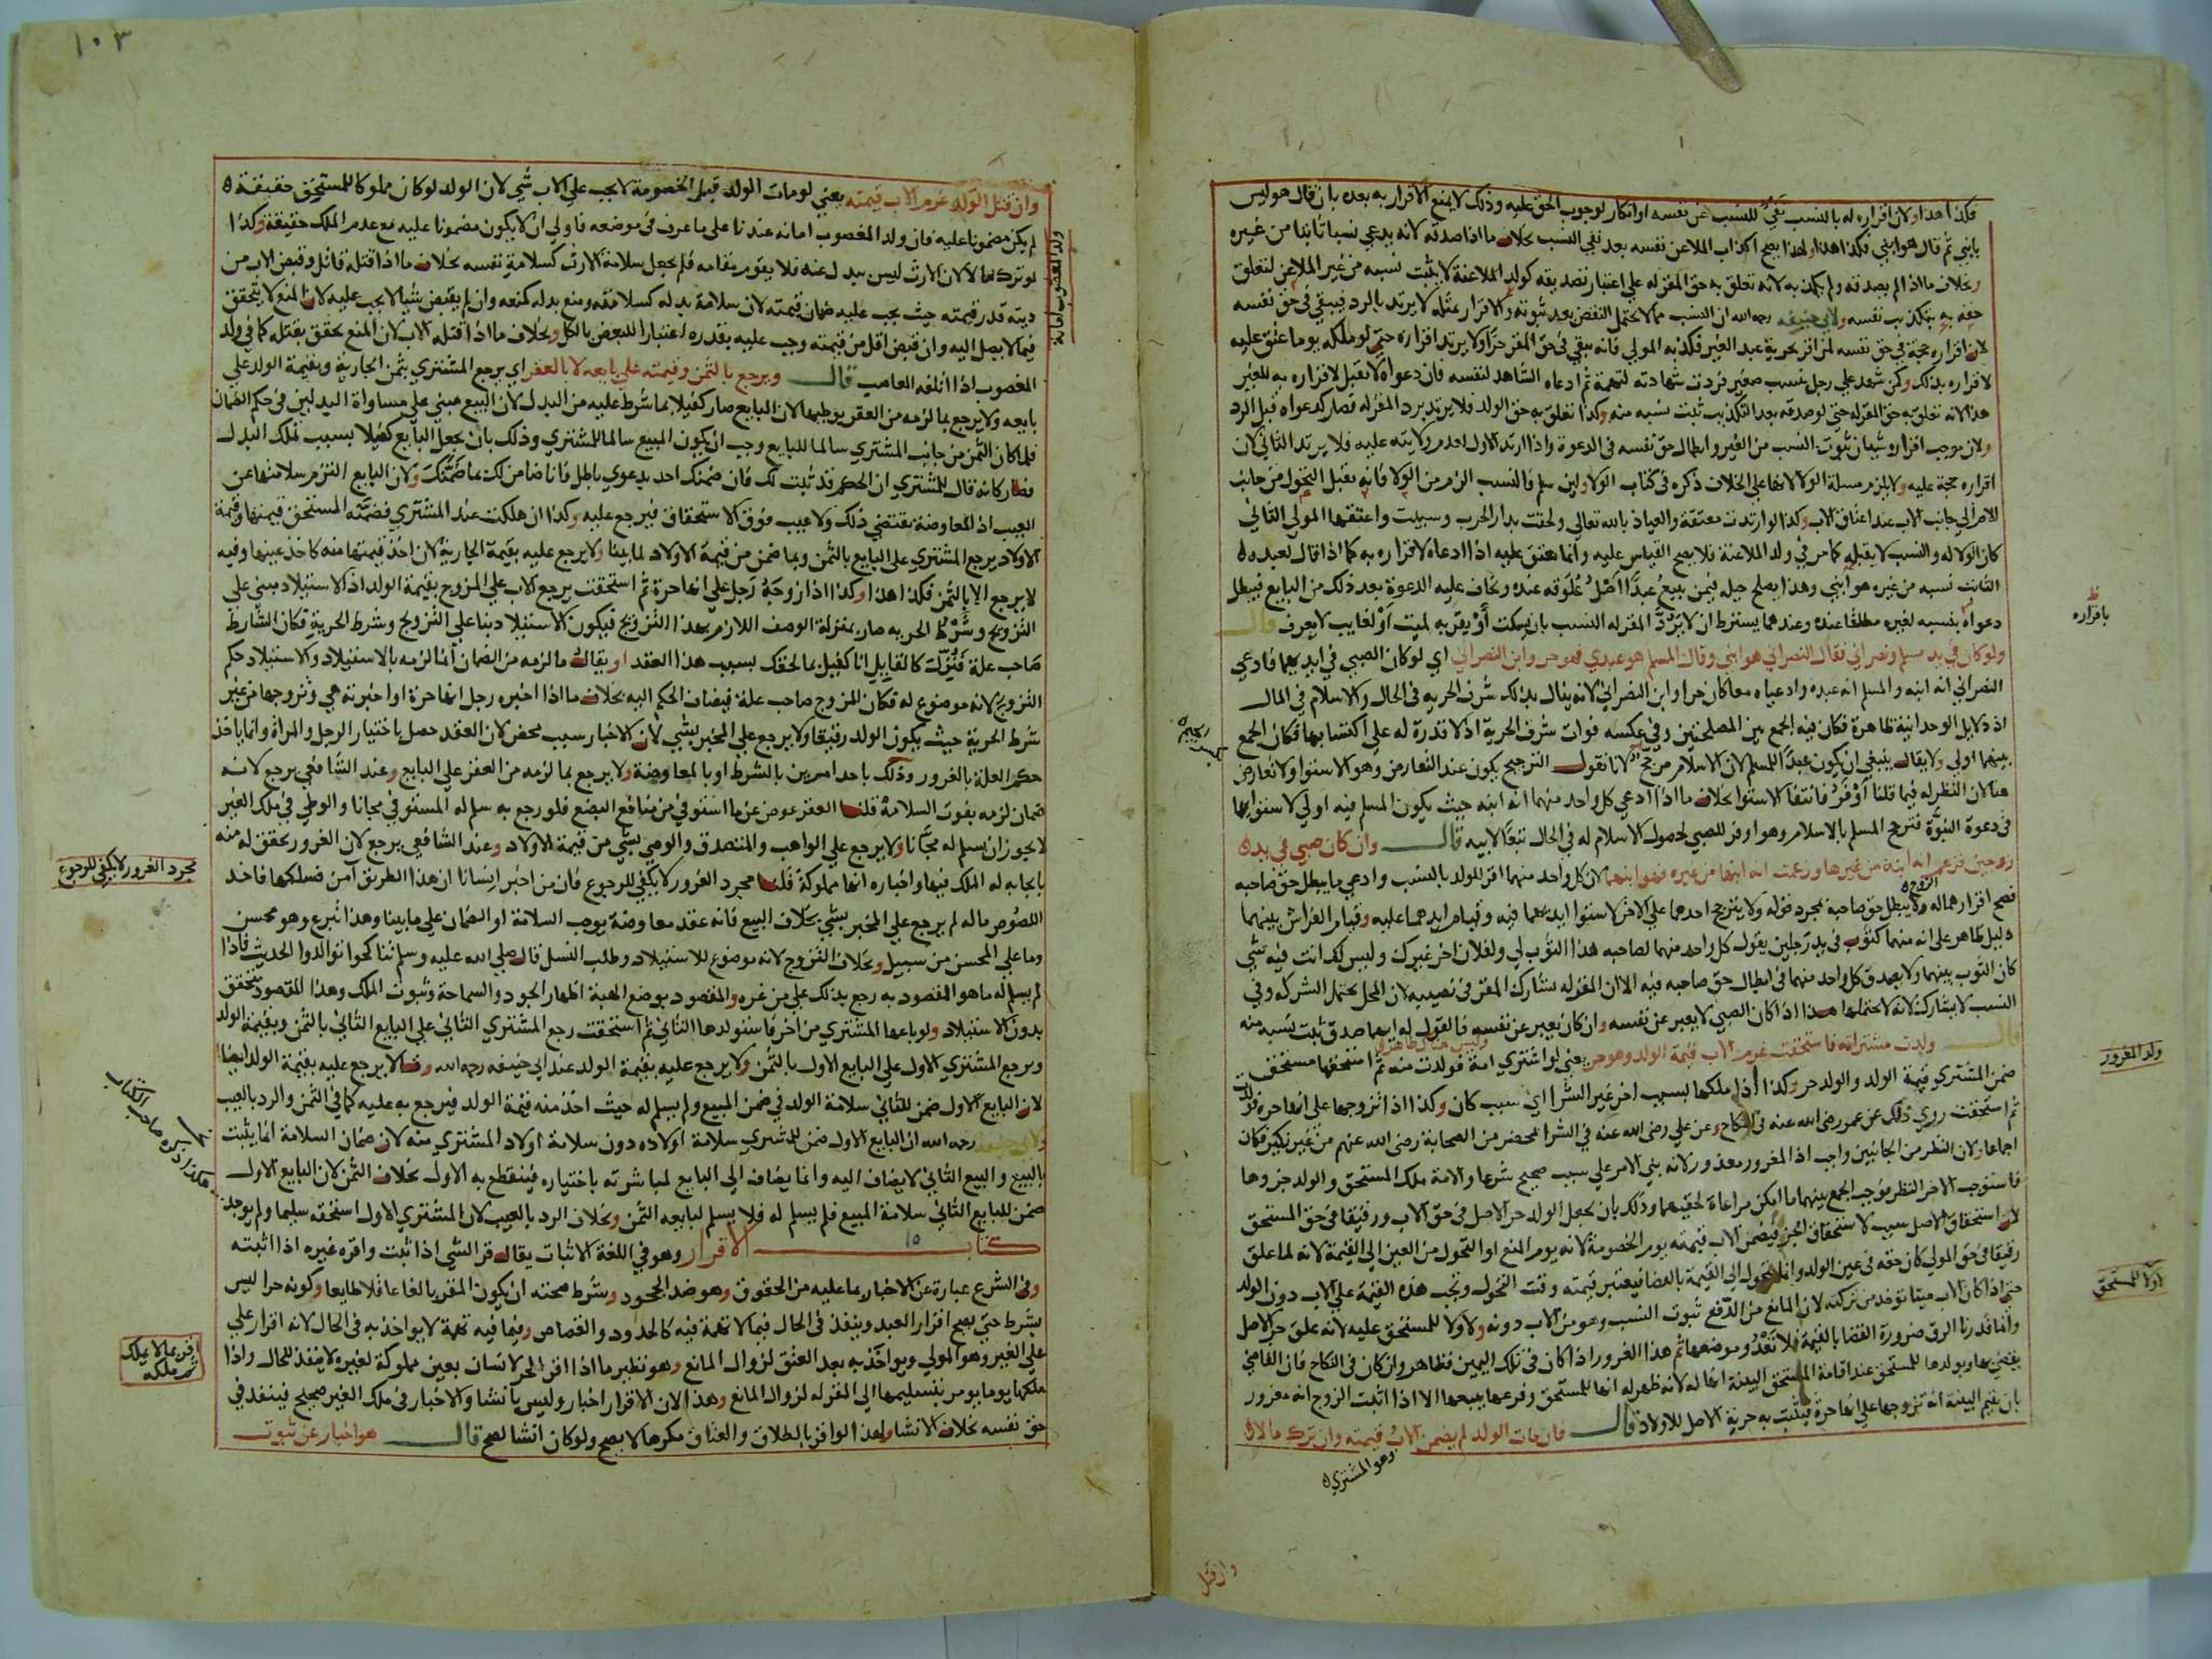 فكذا هذا ولان اقراره له بالنسب نفي للنسب عن نفسه او انكار لوجوب الحق عليه وذلك لا يمنع الاقرار به بعده بان قال هو ليس
بابني ثم قال هو ابني فكذا هذا ولهذا يصح اكذاب الملاعن نفسه بعد نفي النسب بخلاف ما اذا صدقه لانه يدعي نسبا ثابتا من غيره
وبخلاف ما اذا لم يصدقه ولم يكذبه لانه تعلق به حق المقر له على اعتبار تصديقه كولد الملاعنة لا يثبت نسبه من غير الملاعن لتعلق
حقه به بتكذيب نفسه ولابي حنيفة رحمه الله ان النسب مما لا يحتمل النقض بعد ثبوته والاقرار بمثله لا يرتد بالرد فيبقى في حق نفسه
لان اقراره حجة في حق نفسه كمن اقر بحرية عبد الغير فكذبه المولى فانه يبقى في حق المقر حرا ولا يرتد اقراره حتى لو ملكه يوما عتق عليه
لاقراره بذلك وكمن شهد على رجل بنسب صغير فردت شهادته لتهمة ثم ادعاه الشاهد لنفسه فان دعواه لا تقبل لاقراره به للغير
هذا لانه تعلق به حق المقر له حتى لو صدقه بعد التكذيب ثبت نسبه منه وكذا تعلق به حق الولد فلا يرتد برد المقر له فصار كدعواه قبل الرد
ولان موجب اقراره شيئان ثبوت النسب من الغير وابطال حق نفسه في الدعوة واذا ارتد الاول لعدم ولايته عليه فلا يرتد الثاني لان
اقراره حجة عليه ولا يلزم مسلة الولا لانها على الخلاف ذكره في كتاب الولا ولين سلم فالنسب الزم من الولا فانه يقبل التحول من جانب
الام الى جانب الاب عند اعتاق الاب وكذا لو ارتدت معتقة والعياذ بالله تعالى ولحقت بدار الحرب وسبيت واعتقها المولى الثاني
كان الولا له والنسب لا يقبله كما مر في ولد الملاعنة فلا يصح القياس عليه وانما يعتق عليه اذا ادعاه لاقراره به كما اذا قال لعبده
الثابت نسبه من غيره هو ابني وهذا يصلح حيلة فيمن يبيع عبدا اصل علوقه عنده ويخاف عليه الدعوة بعد ذلك من البايع فيبطل
دعواه بنسبه لغيره مطلقا عنده وعندهما يشترط ان لا يرد المقر له النسب بان يسكت او يقر به لميت او لغايب لا يعرف قال
ولو كان في يد مسلم ونصراني فقال النصراني هو ابني وقال المسلم هو عبدي فهو حر وابن النصراني اي لو كان الصبي في ايديهما فادعى
النصراني انه ابنه والمسلم انه عبده وادعياه معا كان حرا وابن النصراني لانه ينال بذلك شرف الحرية في الحال والاسلام في المال
اذ دلايل الوحدانية ظاهرة فكان فيه الجمع بين المصلحتين وفي عكسه فوات شرف الحرية اذ لا قدرة له على اكتسابها فكان الجمع
بينهما اولى ولا يقال ينبغي ان يكون عبدا للمسلم لان الاسلام مرجح لانا نقول الترجيح يكون عند التعارض وهو الاستوا ولا تعارض
هنا لان النظر له فيما قلنا اوفر فانتفا الاستوا بخلاف ما اذا ادعى كل واحد منهما انه ابنه حيث يكون المسلم فيه اولى لاستوايهما
في دعوة البنوة فترجح المسلم بالاسلام وهو اوفر للصبي لحصول الاسلام له في الحال تبعا لابيه قال وان كان صبي في يد
زوجين فزعم انه ابنه من غيرها وزعمت انه ابنها من غيره فهو ابنهما لان كل واحد منهما اقر للولد بالنسب وادعى ما يبطل حق صاحبه
فصح اقرارهما له ولا يبطل حق صاحبه بمجرد قوله ولا يترجح احدهما على الاخر لاستوا ايديهما فيه وقيام ايديهما عليه وقيام الفراش بينهما
دليل ظاهر على انه منهما كثوب في يد رجلين يقول كل واحد منهما لصاحبه هذا الثوب لي ولفلان اخر غيرك وليس لك انت فيه شي
كان الثوب بينهما ولا يصدق كل واحد منهما في ابطال حق صاحبه فيه الا ان المقر له يشارك المقر في نصيبه لان المحل يحتمل الشركة وفي
النسب لا يشارك لانه لا يحتملها هذا اذا كان الصبي لا يعبر عن نفسه وان كان يعبر عن نفسه فالقول له ايهما صدق ثبت نسبه منه
قال ولدت مشتراة فاستحقت غرم الاب قيمة الولد وهو حر يعني لو اشترى امة فولدت منه ثم استحقها مستحق
ضمن المشتري قيمة الولد والولد حر وكذا اذا ملكها بسبب اخر غير الشرا اي سبب كان وكذا اذا تزوجها على انها حرة فولدت
ثم استحقت روي ذلك عن عمر رضي الله عنه في النكاح وعن علي رضي الله عنه في الشرا بمحضر من الصحابة رضي الله عنهم من غير نكير فكان
اجماعا ولان النظر من الجانبين واجب اذ المغرور معذور لانه بنى الامر على سبب صحيح شرعا والامة ملك المستحق والولد جزوها
فاستوجب الاخر النظر فوجب الجمع بينهما ما امكن مراعاة لحقيهما وذلك بان يجعل الولد حر الاصل في حق الاب ورقيقا في حق المستحق
لان استحقاق الاصل سبب لاستحقاق الجزء فيضمن الاب قيمته يوم الخصومة لانه يوم المنع او التحول من العين الى القيمة لانه لما علق
رقيقا في حق المولى كان حقه في عين الولد وانما يتحول الى القيمة بالقضا فيعتبر قيمته وقت التحول وتجب هذه القيمة على الاب دون الولد
حتى اذا كان الاب ميتا توخذ من تركته لان المانع من الدفع ثبوت النسب وهو من الاب دونه ولا ولا للمستحق عليه لانه علق حر الاصل
وانما قدرنا الرق ضرورة القضا بالقيمة فلا تعدو موضعها ثم هذا الغرور اذا كان في ملك اليمين فظاهر وان كان في النكاح فان القاضي
يقضي بها وبولدها للمستحق عند اقامة المستحق البينة انها له لانه ظهر له انها للمستحق وفرعها يتبعها الا اذا اثبت الزوج انه مغرور
بان يقيم البينة انه تزوجها على انها حرة فيثبت به حرية الاصل للاولاد قال فان مات الولد لم يضمن الاب قيمته وان ترك مالا
وهو المشتري
وان قتل
باقراره
ولد المغرور
لا ولا للمستحق
١٠٣
وان قتل الولد غرم الاب قيمته يعني لو مات الولد قبل الخصومة لا يجب على الاب شي لان الولد لو كان مملوكا للمستحق حقيقة
لم يكن مضمونا عليه فان ولد المغصوب امانة عندنا على ما عرف في موضعه فاولى ان لا يكون مضمونا عليه مع عدم الملك حقيقة وكذا
لو ترك مالا لان الارث ليس ببدل عنه فلا يقوم مقامه فلم يجعل سلامة الارث كسلامة نفسه بخلاف ما اذا قتله قاتل وقبض الاب من
ديته قدر قيمته حيث يجب عليه ضمان قيمته لان سلامة بدله كسلامته ومنع بدله كمنعه وان لم يقبض شيا لا يجب عليه لان المنع لا يتحقق
فيما لا يصل اليه وان قبض اقل من قيمته وجب عليه بقدره اعتبارا للبعض بالكل وبخلاف ما اذا قتله الاب لان المنع تحقق بقتله كما في ولد
المغصوب اذا اتلفه الغاصب قال ويرجع بالثمن وقيمته على بايعه لا بالعقر اي يرجع المشتري بثمن الجارية وبقيمة الولد على
بايعه ولا يرجع بما لزمه من العقر بوطيها لان البايع صار كفيلا بما شرط عليه من البدل لان البيع مبني على مساواة البدلين في حكم الضمان
فلما كان الثمن من جانب المشتري سالما للبايع وجب ان يكون المبيع سالما للمشتري وذلك بان يجعل البايع كفيلا بسبب تملك البدل
فصار كانه قال للمشتري ان الحكم قد ثبت لك فان ضمنك احد بدعوى باطل فانا ضامن لك بما ضمنك ولان البايع التزم سلامتها عن
العيب اذ المعاوضة تقتضي ذلك ولا عيب فوق الاستحقاق فيرجع عليه وكذا ان هلكت عند المشتري فضمنه المستحق قيمتها وقيمة
الاولاد يرجع المشتري على البايع بالثمن وبما ضمن من قيمة الاولاد لما بينا ولا يرجع عليه بقيمة الجارية لان اخذ قيمتها منه كاخذ عينها وفيه
لا يرجع الا بالثمن فكذا هذا وكذا اذا زوجه رجل على انها حرة ثم استحقت يرجع الاب على المزوج بقيمة الولد اذ الاستيلاد مبني على
التزويج وشرط الحرية صار بمنزلة الوصف اللازم بهذا التزويج فيكون الاستيلاد بنا على التزويج وشرط الحرية فكان الشارط
صاحب علة فنزلت كالقايل انا كفيل بما لحقك بسبب هذا العقد او يقال ما لزمه من الضمان انما لزمه بالاستيلاد والاستيلاد حكم
التزويج لانه موضوع له فكان المزوج صاحب علة فيضاف الحكم اليه بخلاف ما اذا اخبره رجل انها حرة او اخبرته هي وتزوجها من غير
شرط الحرية حيث يكون الولد رقيقا ولا يرجع على المخبر بشي لان الاخبار سبب محض لان العقد حصل باختيار الرجل والمراة وانما ياخذ
حكم العلة بالغرور وذلك باحد امرين بالشرط او بالمعاوضة ولا يرجع بما لزمه من العقر على البايع وعند الشافعي يرجع لانه
ضمان لزمه بفوت السلامة قلنا العقر عوض عن ما استوفى من منافع البضع فلو رجع به سلم له المستوفى مجانا والوطي في ملك الغير
لا يجوز ان يسلم له مجانا ولا يرجع على الواهب والمتصدق والوصي بشي من قيمة الاولاد وعند الشافعي يرجع لان الغرور تحقق له منه
بايجابه له الملك فيها واخباره انها مملوكة قلنا مجرد الغرور لا يكفي للرجوع فان من اخبر انسانا ان هذا الطريق آمن فسلكها فاخذ
اللصوص ماله لم يرجع على المخبر بشي بخلاف البيع فانه عقد معاوضة يوجب السلامة او الضمان على ما بينا وهذا تبرع وهو محسن
وما على المحسن من سبيل وبخلاف التزوج لانه موضوع للاستيلاد وطلب النسل قال صلى الله عليه وسلم تناكحوا توالدوا الحديث فاذا
لم يسلم له ما هو المقصود به رجع بذلك على من غره والمقصود بوضع الهبة اظهار الجود والسماحة وثبوت الملك وهذا المقصود يتحقق
بدون الاستيلاد ولو باعها المشتري من اخر فاستولدها الثاني ثم استحقت رجع المشتري الثاني على البايع الثاني بالثمن وبقيمة الولد
ويرجع المشتري الاول على البايع الاول بالثمن ولا يرجع عليه بقيمة الولد عند ابي حنيفة رحمه الله وقالا يرجع عليه بقيمة الولد ايضا
لان البايع الاول ضمن للثاني سلامة الولد في ضمن المبيع ولم يسلم له حيث اخذ منه قيمة الولد فيرجع به عليه كما في الثمن والرد بالعيب
ولابي حنيفة رحمه الله ان البايع الاول ضمن للمشتري سلامة اولاده دون سلامة اولاد المشتري منه لان ضمان السلامة انما يثبت
بالبيع والبيع الثاني لا يضاف اليه وانما يضاف الى البايع لمباشرته باختياره فينقطع به الاول بخلاف الثمن لان البايع الاول
ضمن للبايع الثاني سلامة المبيع فلم يسلم له فلا يسلم لبايعه الثمن وبخلاف الرد بالعيب لان المشتري الاول استحقه سليما ولم يوجد
كتاب الاقرار وهو في اللغة الاثبات يقال قر الشي اذا ثبت واقره غيره اذا اثبته
وفي الشرع عبارة عن الاخبار بما عليه من الحقوق وهو ضد الجحود وشرط صحته ان يكون المقر بالغا عاقلا طايعا وكونه حرا ليس
بشرط حتى يصح اقرار العبد وينفذ في الحال فيما لا تهمة فيه كالحدود والقصاص وفيما فيه تهمة لا يواخذ به في الحال لانه اقرار على
على الغير وهو المولى ويواخذ به بعد العتق لزوال المانع وهو نظير ما اذا اقر الحر لانسان بعين مملوكة لغيره لا ينفذ للحال واذا
ملكها يوما يومر بتسليمها الى المقر له لزوال المانع وهذا لان الاقرار اخبار وليس بانشا والاخبار في ملك الغير صحيح فينفذ في
حق نفسه بخلاف الانشا ولهذا لو اقر بالطلاق والعتاق مكرها لا يصح ولو كان انشا لصح قال هو اخبار عن ثبوت
ولد المغصوب امانة
مجرد الغرور لا يكفي للرجوع
اقر بما لا يملك
ثم ملكه